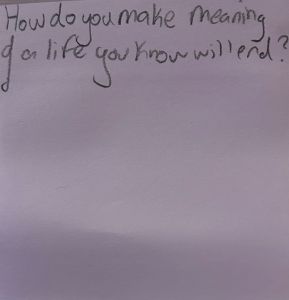 How do you make meaning
of a life you know will end?